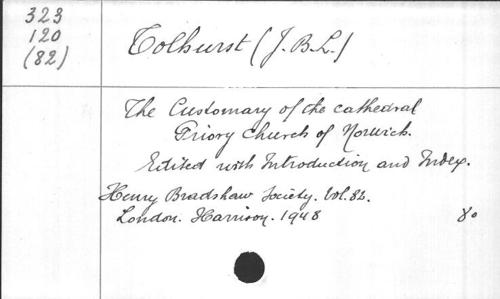 323
120
(82)
Tolhurst (J.B.L.)
The Customary of the cathedral
Priory Church of Norwich.
Edited with Introduction and Index.
Henry Bradshaw Society. Vol. 82.
London. Harrison. 1948
8o